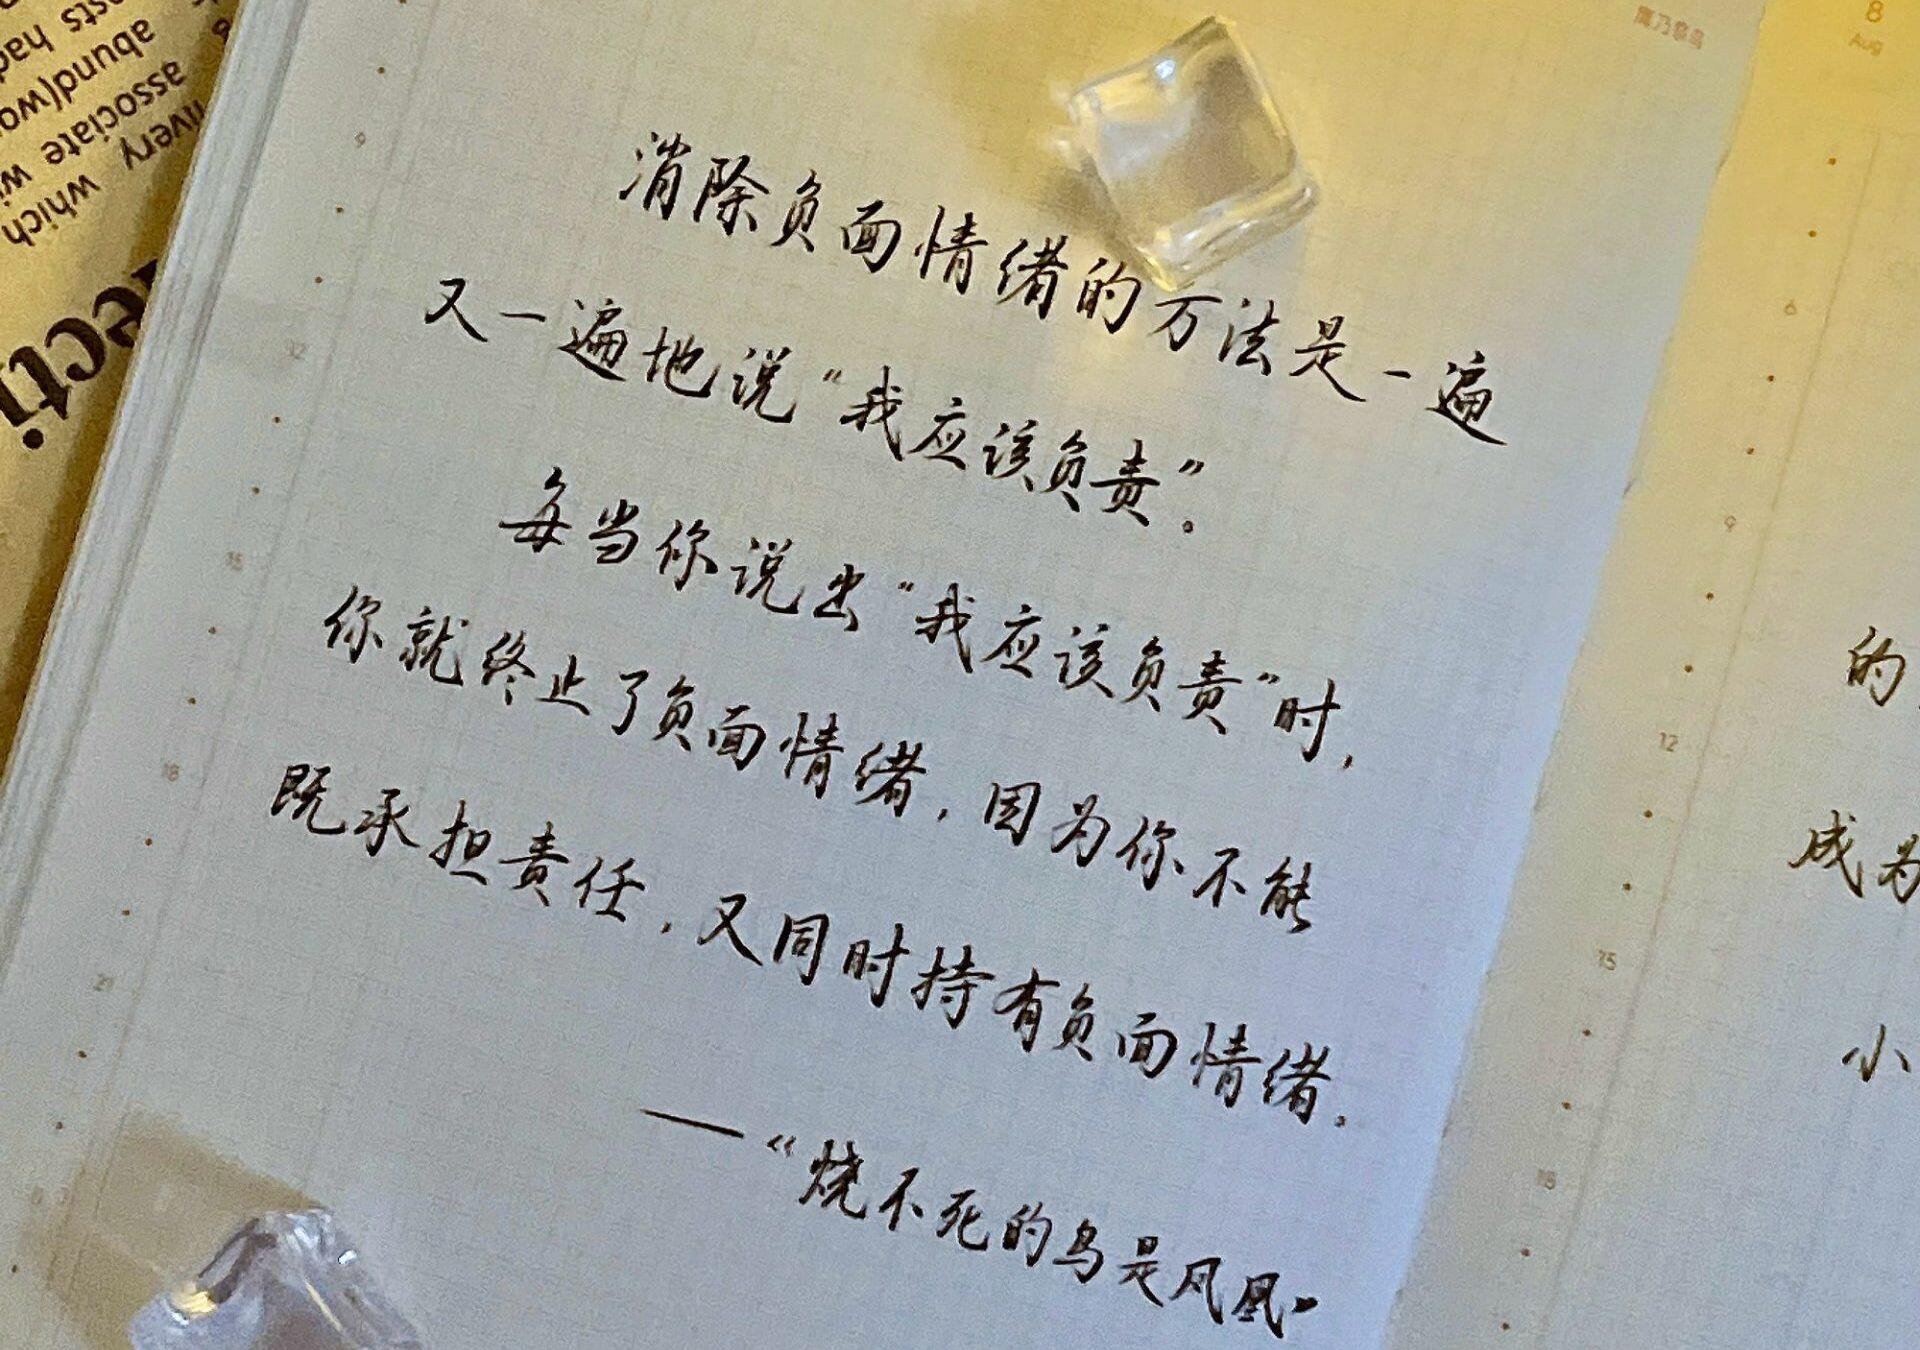 ests had
abund(wor
associate wi
livery
which
ecti
8
Aug
9
12
15
18
21
消除负面情绪的万法是一遍
又一遍地说“我应该负责”。
每当你说出“我应该负责”时,
你就终止了负面情绪,因为你不能
既承担责任,又同时持有负面情绪。
——“烧不死的鸟是凤凰”
6
9
12
15
18
的
成为
小